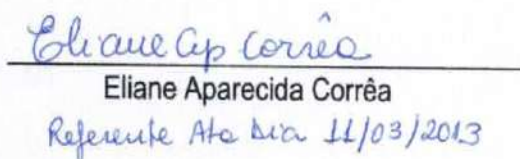 Eliane Ap Corrêa
Eliane Aparecida Corrêa
Referente Ata Dia 11/03/2013